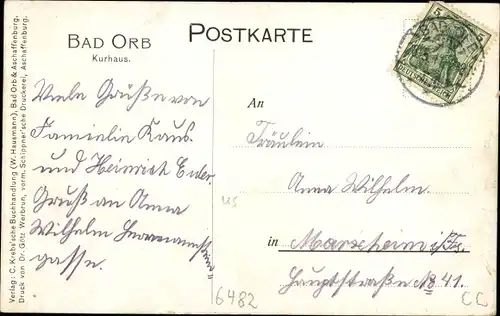 Verlag: C. Krebs'sche Buchhandlung (W. Hausmann), Bad Orb & Aschaffenburg.
Druck von Dr. Götz Werbrun, vorm. Schippner'sche Druckerei, Aschaffenburg.
BAD ORB
Kurhaus.
POSTKARTE
5 5
DEUTSCHES REICH
Viele Grüße von
Familie Kaus
und Heinrich Euler.
Gruß an Anna
Wilhelm
gasse.
An
Fräulein
Anna Wilhelm.
in Marxheim i/Ts.
Hauptstraße No 41.
us
6482
CC